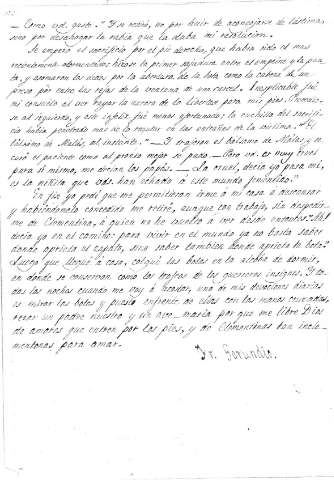 — Como vd. guste." Y se retiró, no por huir de aconsejarse de lástima
sino por desahogar la rabia que le daba mi resolucion.
Se empezó el sacrificio por el pie derecho, que habia sido el mas
hízose la primer sajadura entre el empeine y la punta,
y asomaron los dedos por la abertura de la bota como la cabeza de un
preso por entre las rejas de la ventana de una carcel. Inesplicable fué
mi consuelo al ver rayar la aurora de la libertad para mis pies. Procedióse
al izquierdo, y este infeliz fué menos afortunado: la cuchilla del sacrificio
habia penetrado mas de lo regular en las entrañas de la víctima. "El
bálsamo de Malás, al instante." Y trajeron el bálsamo de Malás, y se
curó el paciente como al pronto mejor se pudo. — Pero vd. es muy cruel
para sí mismo, me decian los papás. — La cruel, decia yo para mí,
es la niñita que vds. han echado á este mundo
En fin yo pedí que me permitieran irme á mi casa á descansar
y habiéndomelo concedido me retiré, aunque con trabajo, sin despedirme
de Clementina, á quien no he vuelto á ver desde entonces. "Ah!
decia yo en el camino: para vivir en el mundo ya no basta saber
donde aprieta el zapato, sino saber tambien donde aprieta la bota."
Luego que llegué á casa, colgué las botas en la alcoba de dormir,
en donde se conservan como los trofeos de los guerreros insignes. Y todas
las noches cuando me voy á acostar, una de mis devociones diarias
es mirar las botas y puesto enfrente de ellas con las manos cruzadas,
rezar un padre nuestro y un ave-maria por que me libre Dios
de amores que entren por los pies, y de Clementinas tan
para amar.
Fr. Gerundio.